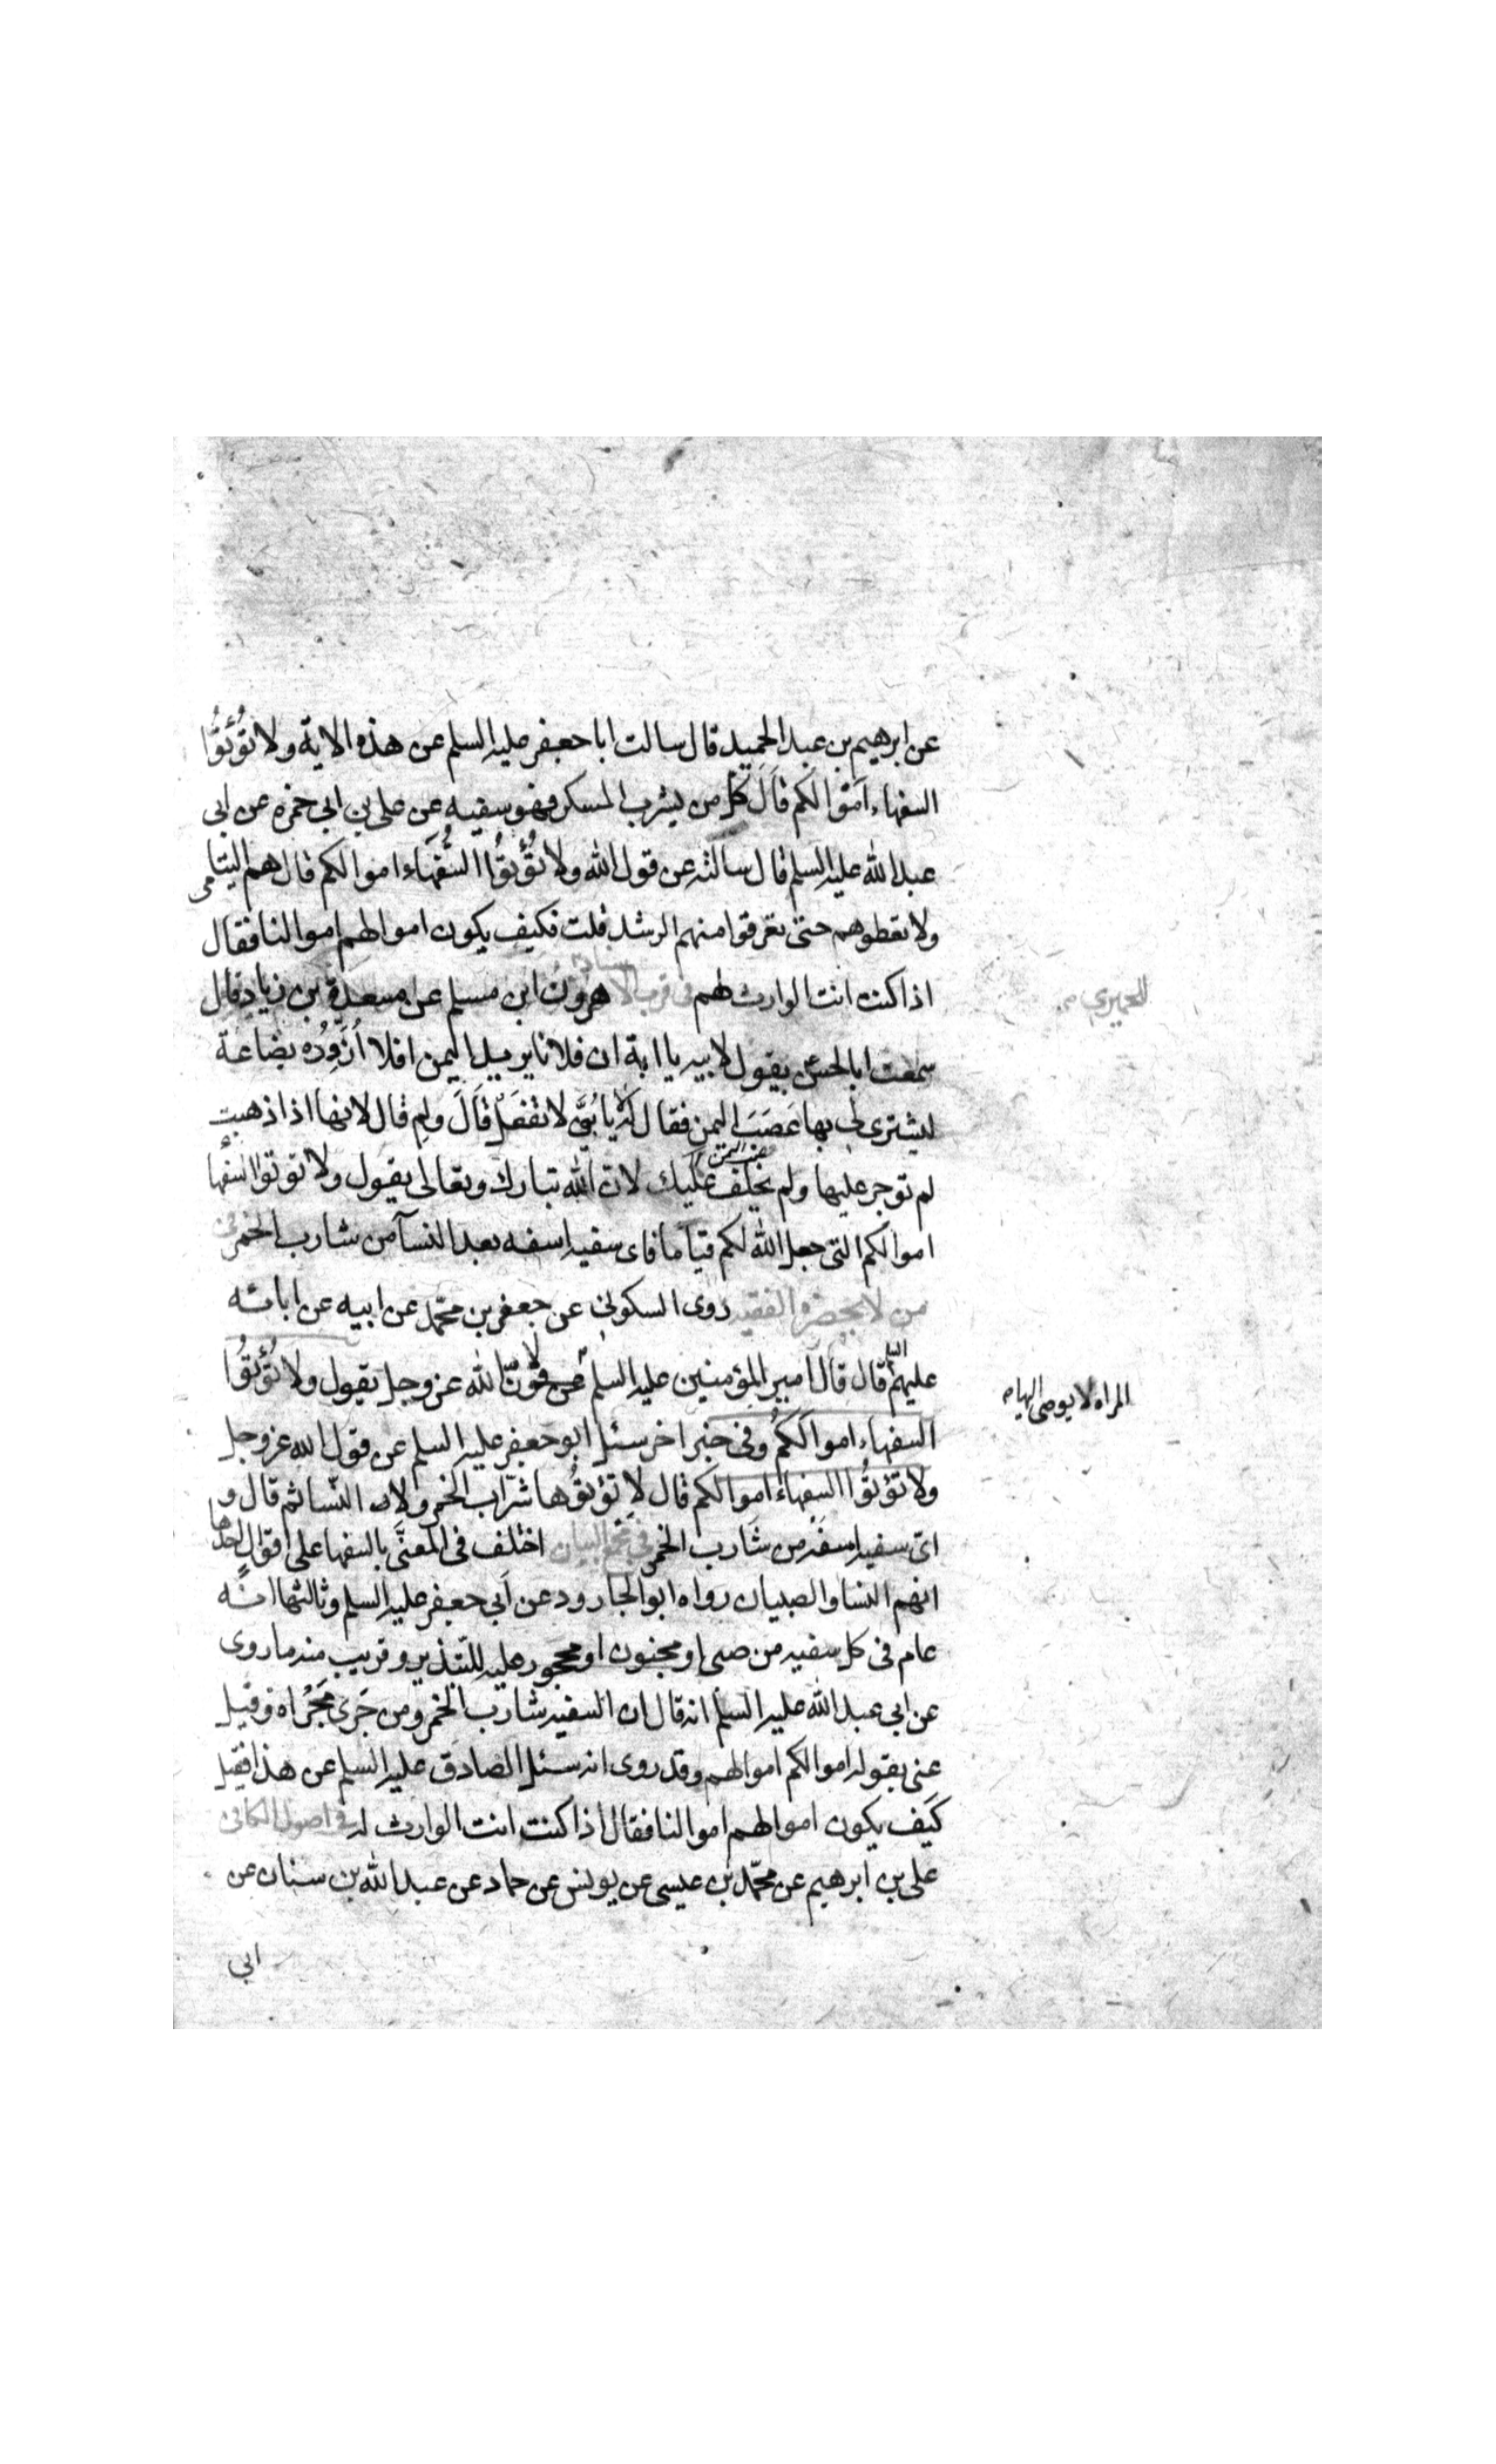 عن ابرهيم بن عبد الحميد قال سالت ابا جعفر عليه السلم عن هذه الاية ولا تُؤتُوا
السفهاء اموالكم قال كل من يشرب المسكر فهو سفيه عن علي بن ابي حمزه عن ابى
عبد الله عليه السلم قال سالته عن قول الله ولا تُؤتُوا السُّفَهَاء اموالكم قال هم اليتامى
ولا تعطوهم حتى تعرفوا منهم الرشد قلت فكيف يكون اموالهم اموالنا فقال
اذا كنت انت الوارث لهم فى قرب الاسناد هرون ابن مسلم عن مسعدة بن زياد قال
الحميرى
سمعت ابا الحسن يقول لابيه يا ابة ان فلانا يريد اليمن افلا اُزَوِّدُه بضاعة
ليشترى لى بها عَصَبَ اليمن فقال له يا بُنَىَّ لا تفعل قَالَ ولِم قال لانها اذا ذهبت
لم توجر عليها ولم يخلف عليك لان الله تبارك وتعالى يقول ولا توتوا السُّفها
اموالكم التى جعل الله لكم قياما فاى سفيه اسفه بعد النسآ من شارب الخمر فى
من لا يحضره الفقيه روى السكونى عن جعفر بن محمّد عن ابيه عن ابائه
عليهم السلم قال قال امير المؤمنين عليه السلم لانّ الله عز وجل يقول ولا تُؤتُوا
المراه لا يوصى اليها
السفهاء اموالكُم وفى خبر اخر سئل ابو جعفر عليه السلم عن قول الله عز وجل
ولا تؤتُوا السفهاء اموالكم قال لا تؤتوها شرّاب الخمر ولا النّسا ثم قال و
اىّ سفيه اسفه من شارب الخمر فى مجمع البيان اختلف فى المعنَّى بالسفها على اقوال احدها
انهم النسا والصبيان رواه ابو الجارود عن ابى جعفر عليه السلم وثالثها انّه
عام فى كل سفيه من صبى او مجنون او محجور عليه للتبذير وقريب منه ما روى
عن ابى عبد الله عليه السلم انه قال ان السفيه شارب الخمر ومن جَرى مَجْراه وقيل
عنى بقوله اموالكم اموالهم وقد روى انه سئل الصادق عليه السلم عن هذا فقيل
كَيف يكون اموالهم اموالنا فقال اذا كنت انت الوارث له فى اصول الكافى
على بن ابرهيم عن محمّد بن عيسى عن يونس عن حماد عن عبد الله بن سنان عن
ابى